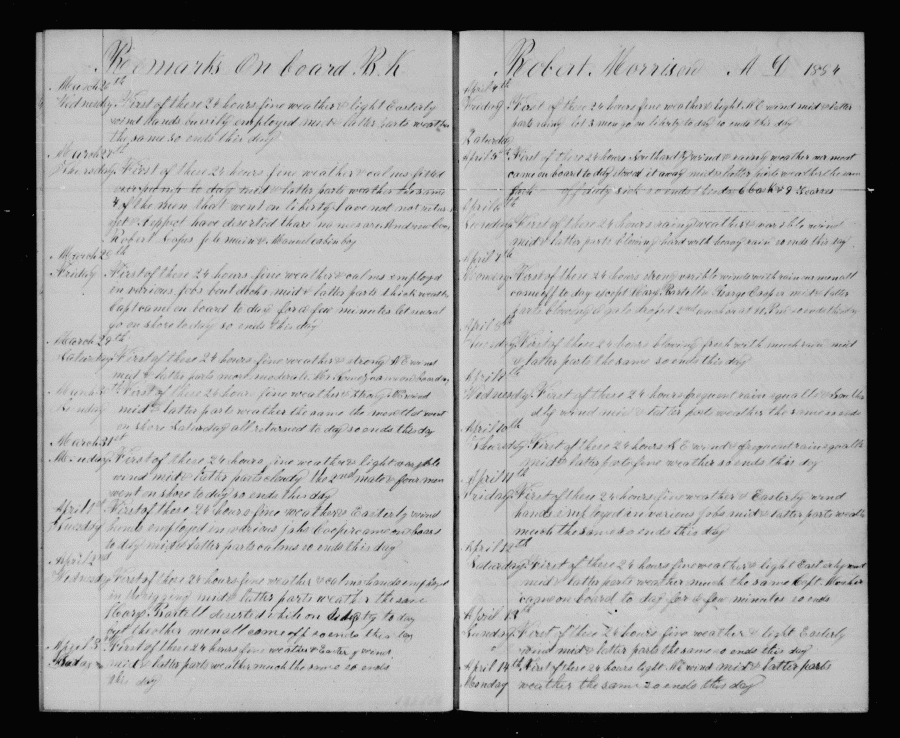 Remarks On board B.K
March 26th
Wednesday First of these 24 hours fine weather & light Easterly
wind hands employed mid & latter parts weather
the same so ends this day
March 27th
Thursday First of these 24 hours fine weather & calms
to day mid & latter parts weather the same
4 of the men that went on liberty have not return
yet & suppose have deserted thare names are Andrew
Robert
March 28th
Friday First of these 24 hours fine weather & calms employd
in various jobs bout decks mid & latter parts thick weather
Capt came on board to day for a few minutes let several
go on shore to day so ends this day
March 29th
Saturday First of these 24 hours fine weather & strong N E wind
mid & latter parts more moderate
March 30th First of these 24 hours fine weather & strong wind
Sunday mid & latter parts weather the same the men that went
on shore Saturday all returned to day so ends this day
March 31st
Monday First of these 24 hours fine weather & light varible
wind mid & latter parts cloudy the 2nd mate & four men
went on shore to day so ends this day
April 1st First of these 24 hours fine weather & Easterly wind
Tuesday hands employed in various jobs Cooper came on board
to day mid & latter parts calms so ends this day
April 2nd
Wednesday First of these 24 hours fine weather & calms hands employed
in the rigging mid & latter parts weather the same
Harry Bartell deserted while on liberty to day
the other men all come off so ends this day
April 3rd First of these 24 hours fine weather & Easterly wind
mid & latter parts weather much the same so ends
this day
Robert Morrison A D 1884
April 4th
Friday First of these 24 hours fine weather & light N E wind mid & latter
parts rainy let 3 men go on liberty to day so ends this day
Saturday
April 5th First of these 24 hours Southardly wind & rainy weather our meat
came on board to day stowed it away mid & latter parts weather the same
off duty sick so ends
April 6th
Sunday First of these 24 hours rainy weather & varible wind
mid & latter parts blowing hard with heavy rain so ends this day
April 7th
Monday First of these 24 hours strong varible winds with rain our men all
came off to day except Harry Bartell & George Cooper mid & latter
parts blowing a gale droped 2nd anchor at 11 P.M. so ends this day
April 8th
Tuesday First of these 24 hours blowing fresh with much rain mid
& latter parts the same so ends this day
April 9th
Wednesday First of these 24 hours frequent rain squalls &
dly wind mid & latter parts weather the same so ends
April 10th
Thursday First of these 24 hours S E wind & frequent rain squalls
mid & latter parts fine weather so ends this day
April 11
Friday First of these 24 hours fine weather & Easterly wind
hands employed in verious jobs mid & latter parts weather
much the same so ends this day
April 12th
Saturday First of these 24 hours fine weather & light Easterly wind
mid & latter parts weather much the same Capt.
came on board to day for a few minutes so ends
April 13th
Sunday First of these 24 hours fine weather & light Easterly
wind mid & latter parts the same so ends this day
April 14th First of these 24 hours light wind mid & latter parts
Monday weather the same so ends this day